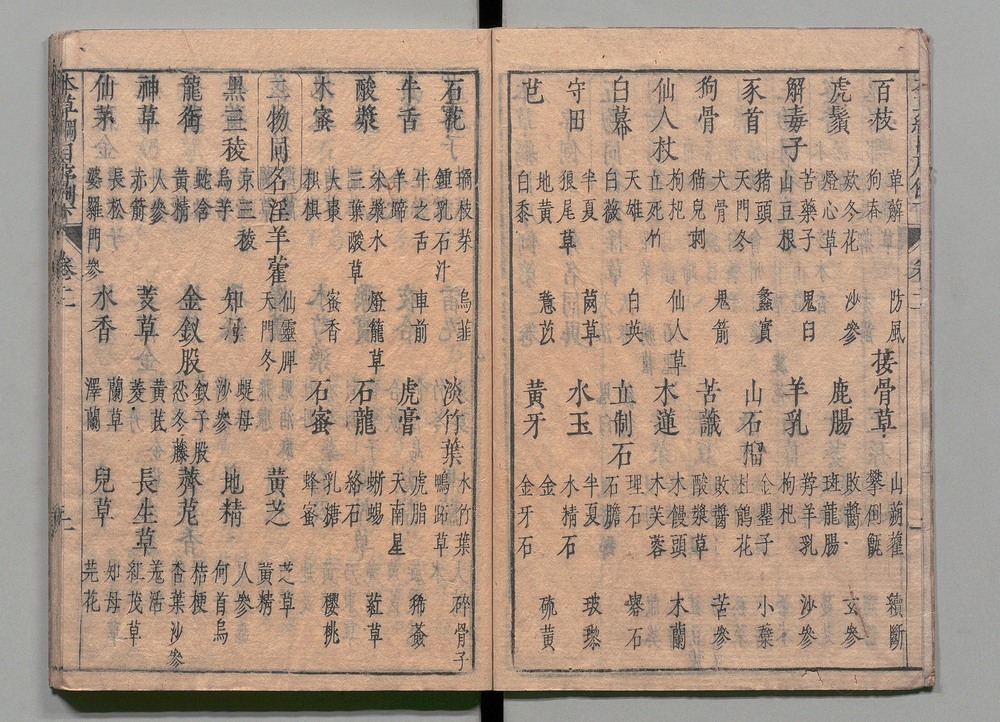 百枝 萆薢 防風 狗脊 接骨草 山蒴藋 續斷 攀倒甑
虎鬚 款冬花 沙參 燈心草 鹿腸 敗醬 玄參 斑龍腸
解毒子 苦藥子 鬼臼 山豆根 羊乳 羚羊乳 沙參 枸杞
豕首 猪頭 蠡實 天門冬 山石榴 金罌子 小蘗 杜鵑花
狗骨 猫兒刺 鬼箭 犬骨 苦識 酸漿草 苦參
仙人杖 枸杞 仙人草 立死竹 木蓮 木饅頭 木蘭 木芙蓉
白幕 天雄 白英 白薇 立制石 理石 礬石 石膽
守田 狼尾草 茵草 半夏 水玉 半夏 玻瓈 水精石
芑 地黃 薏苡 白黍 黃牙 金 硫黃 金牙石
石花 瓊枝菜 烏韭 鍾乳石汁 淡竹葉 水竹葉 碎骨子 鴨跖草
牛舌 牛之舌 車前 羊蹄 虎膏 虎脂 豨薟 天南星
酸漿 米漿水 燈籠草 三葉酸草 石龍 蜥蜴 葒草 絡石
木蜜 大棗 蜜香 枳椇 石蜜 乳糖 櫻桃 蜂蜜
三物同名 淫羊藿 仙靈脾 天門冬 黃芝 芝草 黃精
黑三稜 京三稜 烏芋 知母 蝭母 沙參 地精 人參 何首烏
龍銜 蛇含 黃精 金釵股 釵子股 忍冬藤 薺苨 桔梗 杏葉沙參
神草 人參 赤箭 芰草 黃芪 菱 長生草 羌活 紅茂草
仙茅 長松 婆羅門參 水香 蘭草 澤蘭 兒草 知母 芫花
本草綱目序例下 卷二